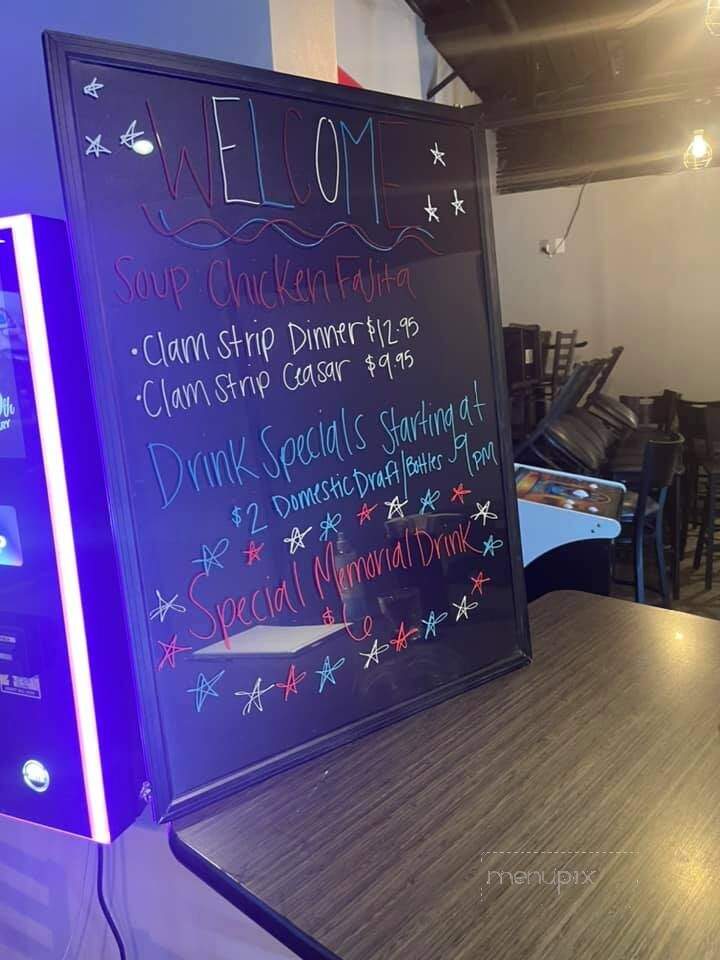 WELCOME
Soup Chicken Fajita
• Clam Strip Dinner $12.95
• Clam Strip Ceasar $9.95
Drink Specials Starting at
9pm
$2 Domestic Draft/Bottles
Special Memorial Drink
$6
menupix